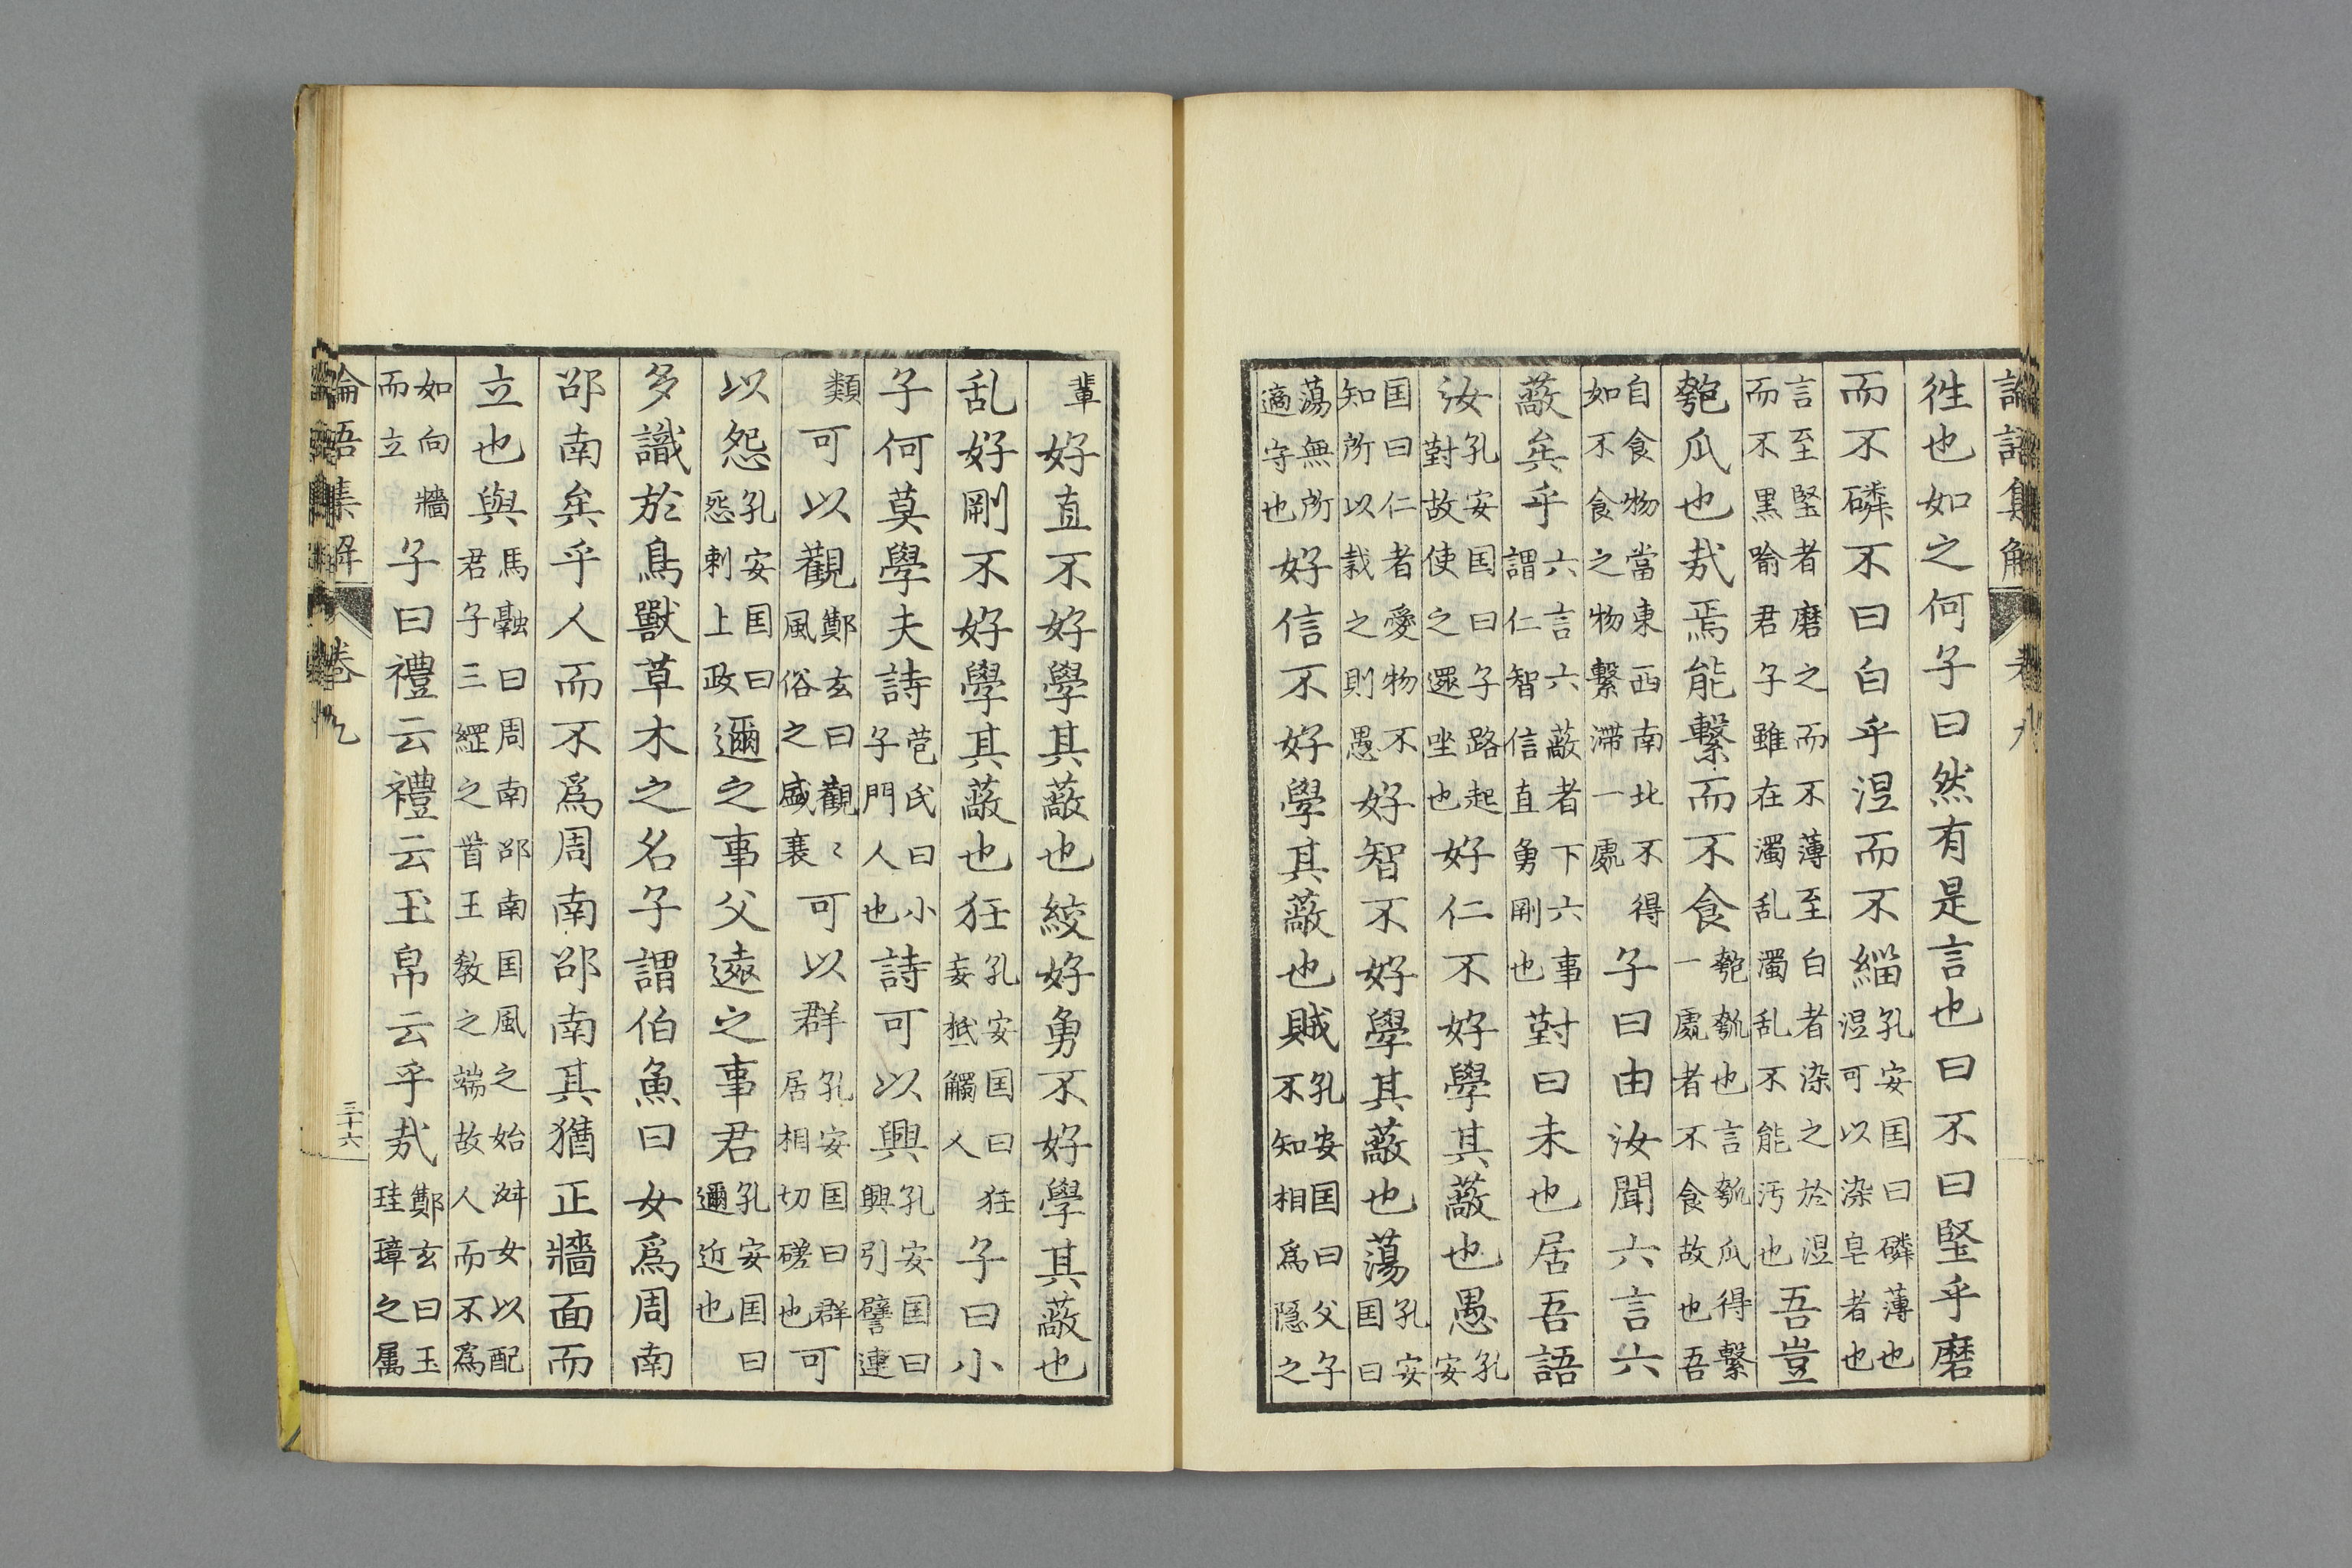 論語集解 卷九
徃也如之何子曰然有是言也曰不曰堅乎磨
而不磷不曰白乎涅而不緇孔安囯曰磷薄也涅可以染皂者也
言至堅者磨之而不薄至白者染之於涅而不黒喻君子雖在濁乱濁乱不能汚也吾豈
匏瓜也㢤焉能繫而不食匏瓠也言瓠瓜得繫一處者不食故也吾
自食物當東西南北不得如不食之物繫滯一處子曰由汝聞六言六
蔽矣乎六言六蔽者下六事謂仁智信直勇剛也對曰未也居吾語
汝孔安囯曰子路起對故使之還坐也好仁不好學其蔽也愚孔安
囯曰仁者愛物不知所以裁之則愚好智不好學其蔽也蕩孔安囯曰
蕩無所適守也好信不好學其蔽也賊孔安囯曰父子不知相爲隠之
輩好直不好學其蔽也絞好勇不好學其蔽也
乱好剛不好學其蔽也狂孔安囯曰狂妄抵觸人子曰小
子何莫學夫詩苞氏曰小子門人也詩可以興孔安囯曰興引譬連
類可以觀鄭玄曰觀〻風俗之盛衰可以群孔安囯曰群居相切磋也可
以怨孔安囯曰怨刺上政邇之事父遠之事君孔安囯曰邇近也
多識於鳥獸草木之名子謂伯魚曰女爲周南
邵南矣乎人而不爲周南邵南其猶正牆面而
立也與馬融曰周南邵南囯風之始淑女以配君子三綱之首王教之端故人而不爲
如向牆而立子曰禮云禮云玉帛云乎㢤鄭玄曰玉珪璋之属
論語集解 卷九 三十六